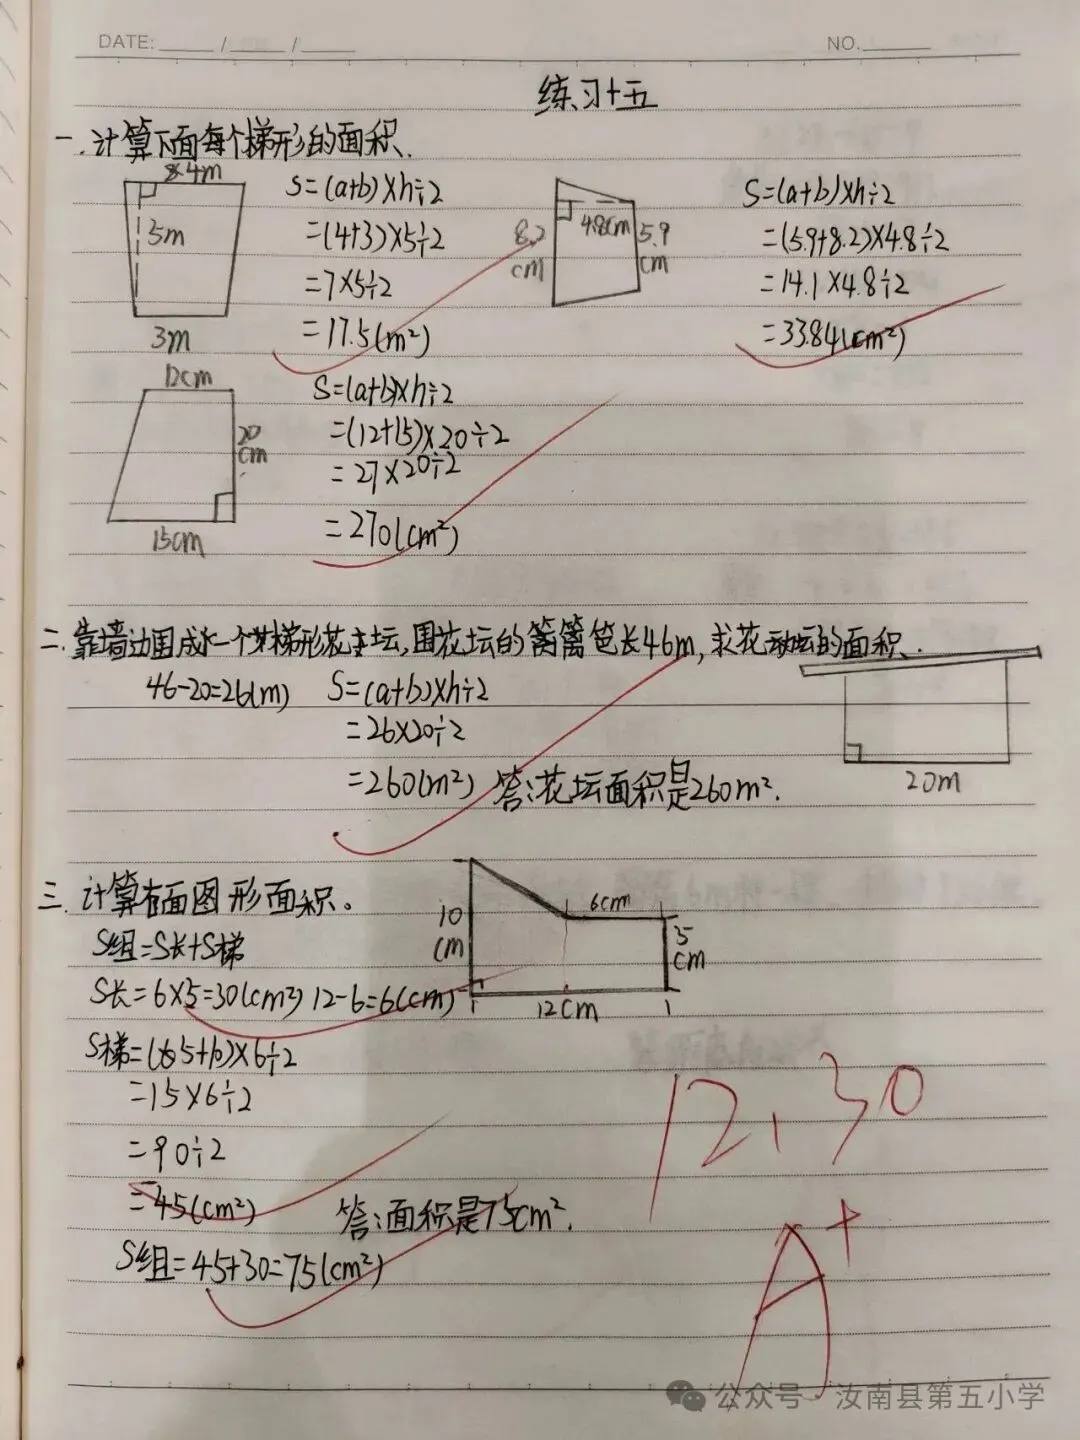 DATE: / /
NO.
练习十五
一.计算下面每个梯形的面积.
4m
3m
5m
S=(a+b)×h÷2
=(4+3)×5÷2
=7×5÷2
=17.5(m²)
8.2cm
4.8cm
5.9cm
S=(a+b)×h÷2
=(5.9+8.2)×4.8÷2
=14.1×4.8÷2
=33.84(cm²)
12cm
20cm
15cm
S=(a+b)×h÷2
=(12+15)×20÷2
=27×20÷2
=270(cm²)
二.靠墙边围成一个梯形花坛,围花坛的篱笆长46m,求花坛的面积.
46-20=26(m)
S=(a+b)×h÷2
=26×20÷2
=260(m²) 答:花坛面积是260m².
20m
三.计算右面图形面积。
10cm
6cm
5cm
12cm
S组=S长+S梯
S长=6×5=30(cm²) 12-6=6(cm)
S梯=(5+10)×6÷2
=15×6÷2
=90÷2
=45(cm²)
答:面积是75cm².
S组=45+30=75(cm²)
12.30
A+
公众号·汝南县第五小学